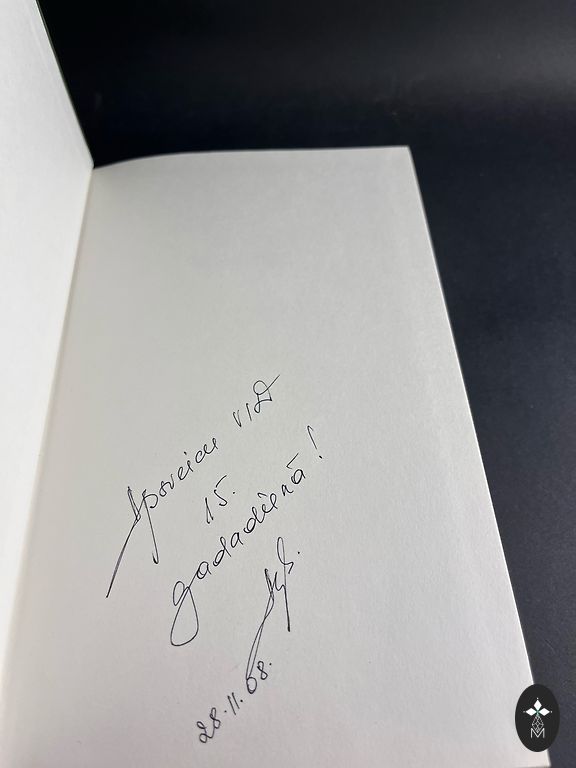 Apsveicu VID
15.
gadadienā!
28.11.08.
M